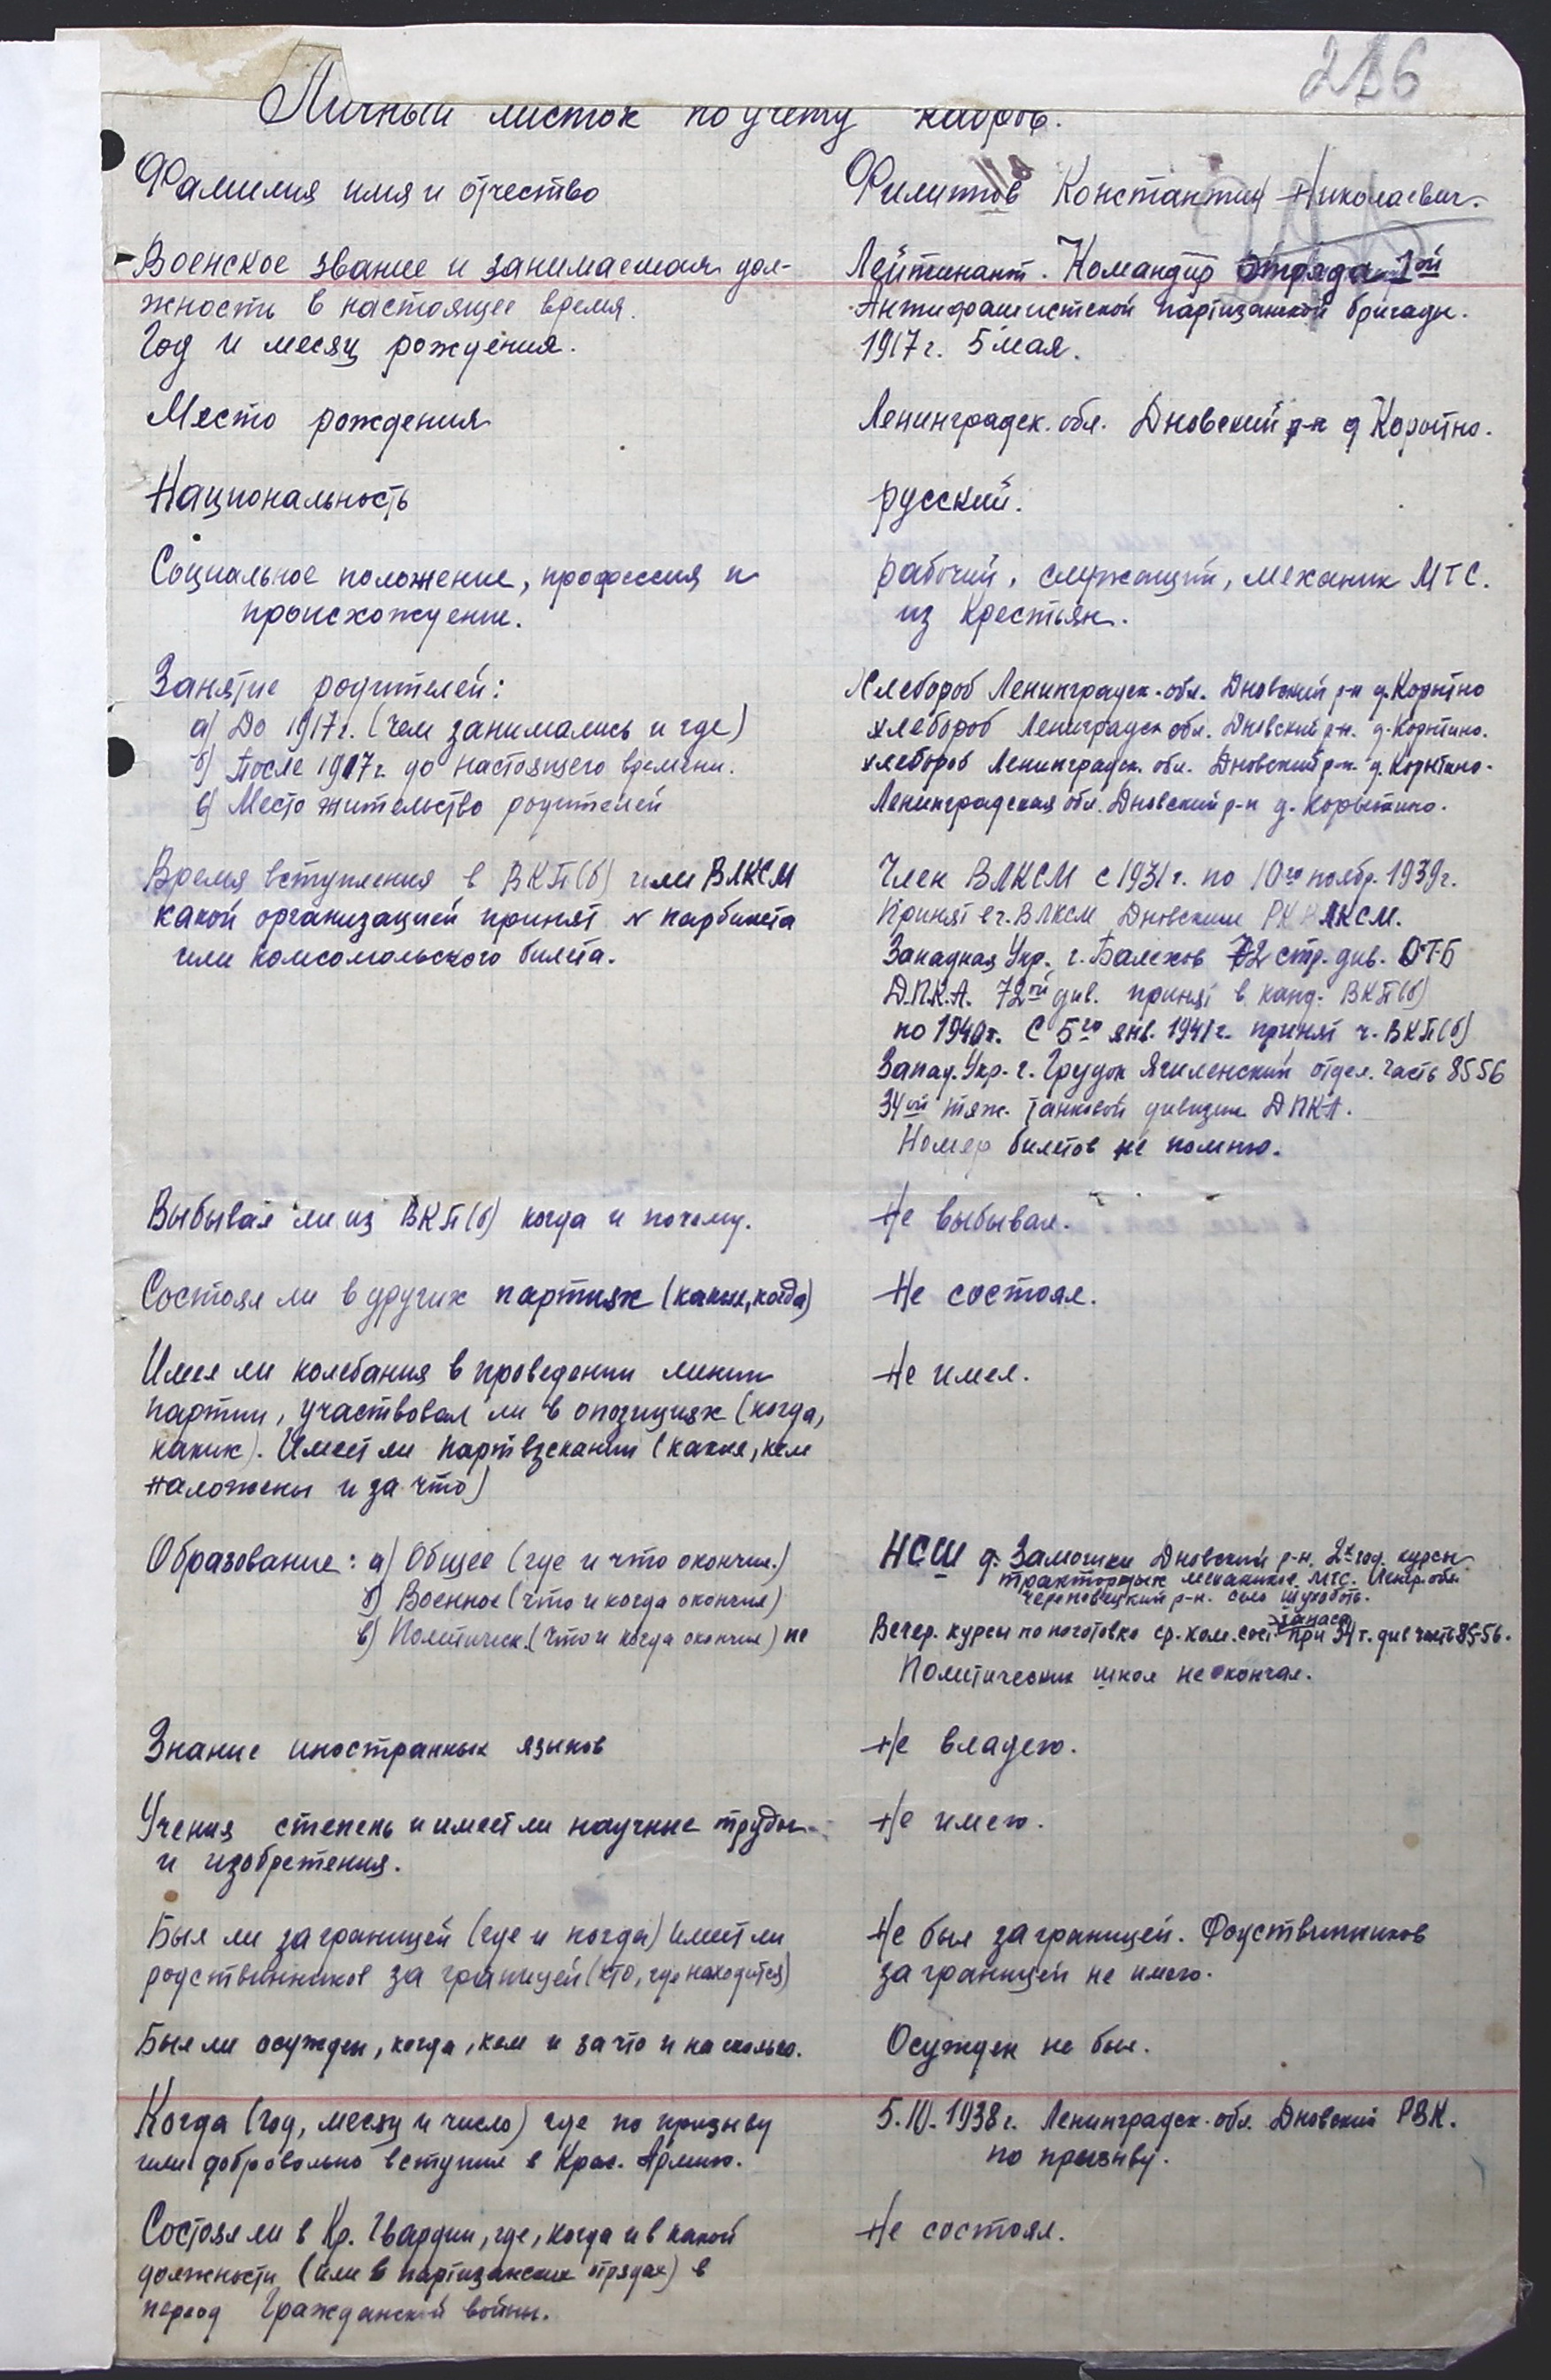 Личный листок по учету кадров.
Фамилия имя и отчество
Филиппов Константин Николаевич.
Военское звание и занимаемая дол-
жность в настоящее время.
Лейтинант. Командир отряда 1ой
Антифашистской партизанской бригады.
Год и месяц рождения.
1917 г. 5 мая.
Место рождения
Ленинградск. обл. Дновский р-н д Корытно.
Национальность
русский.
Социальное положение, профессия и
происхождение.
рабочий, служащий, механик МТС.
из крестьян.
Занятие родителей:
а) До 1917 г. (чем занимались и где)
б) После 1917 г. до настоящего времени.
в) Место жительство родителей
Хлебороб Ленинградск. обл. Дновский р-н д. Корытно
хлебороб Ленинградск обл. Дновский р-н. д. Корытно.
хлебороб Ленинградск. обл. Дновский р-н. д. Корытино.
Ленинградская обл. Дновский р-н д. Корытино.
Время вступления в ВКП(б) или ВЛКСМ
какой организацией принят № парбилета
или комсомольского билета.
Член ВЛКСМ с 1931 г. по 10го ноябр. 1939 г.
Принят в ч. ВЛКСМ Дновским РК ЛКСМ.
Западная Укр. г. Балехов 72 стр. див. О-Т-Б
Д.П.К.А. 72ой див. принят в канд. ВКП(б)
по 1940 г. С 5го янв. 1941 г. принят ч. ВКП(б)
Запад. Укр. г. Грудок Ягиленский отдел. часть 8556
34ой тяж. танковой дивизии ДПКА.
Номер билетов не помню.
Выбывал ли из ВКП(б) когда и почему.
Не выбывал.
Состоял ли в других партиях (какие, когда)
Не состоял.
Имел ли колебания в проведении линии
партии, участвовал ли в опозициях (когда,
каких). Имеет ли партвзскании (какие, кем
наложены и за что)
Не имел.
Образование: а) Общее (где и что окончил.)
б) Военное (что и когда окончил)
в) Политическ. (что и когда окончил) не
НСШ д. Замошки Дновский р-н. 2х год. курсы
тракторных механиков МТС. Ленгр. обл.
Череповецкий р-н. село Шухободь.
запаса
Вечер. курсы по поготовке ср. ком. сост. при 34 т. див часть 85-56.
Политических школ не окончал.
Знание иностранных языков
Не владею.
Учения степень и имеет ли научные труды
и изобретения.
Не имею.
Был ли заграницей (где и когда) Имеет ли
родственников за границей (кто, где находится)
Не был заграницей. Родственников
за границей не имею.
Был ли осужден, когда, кем и за что и на сколько.
Осужден не был.
Когда (год, месяц и число) где по призыву
или добровольно вступил в Крас. Армию.
5.IV.1938 г. Ленинградск. обл. Дновский РВК.
по призыву.
Состоял ли в Кр. Гвардии, где, когда и в какой
должности (или в партизанских отрядах) в
период Гражданской войны.
Не состоял.